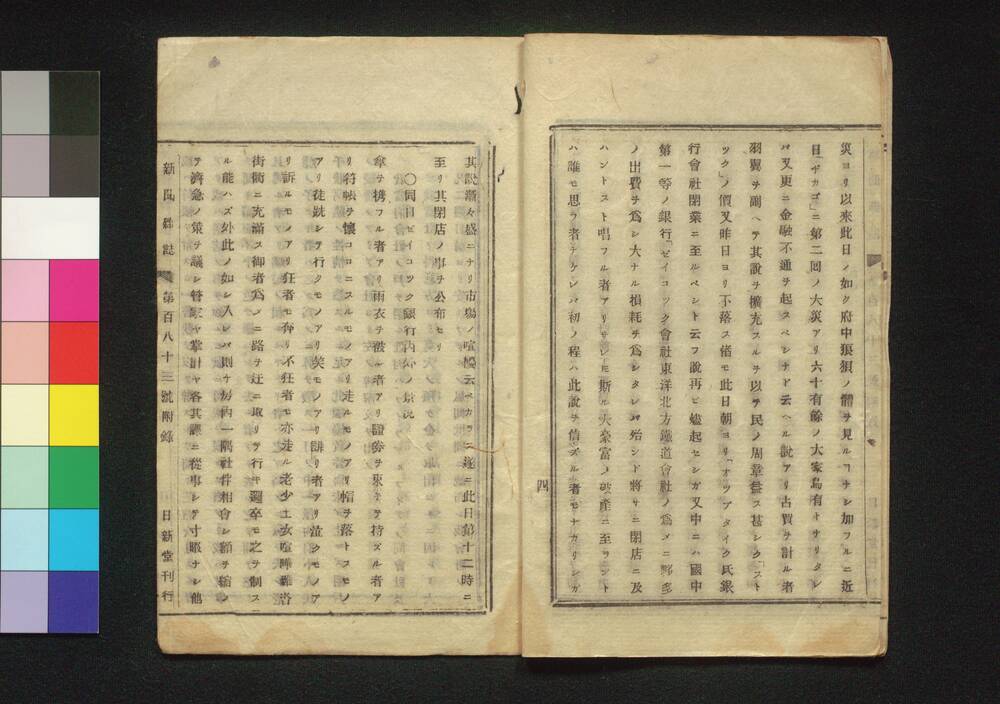 災ヨリ以來此日ノ如ク府中狼狽ノ體ヲ見ルヿナシ加フルニ近
日「チカゴ」ニ第二囘ノ大災アリ六十有餘ノ大家烏有トナリタレ
バ又更ニ金融不通ヲ起スベシナド云ヘル說アリ占買ヲ計ル者
羽翼ヲ副ヘテ其說ヲ擴充スルヲ以テ民ノ周章益ス甚シク「スト
ツク」ノ價又昨日ヨリ下落ス偖モ此日朝ヨリ「オツプダイク氏銀
行會社閉業ニ至ルベシト云フ說再ビ蜂起セシガ又中ニハ國中
第一等ノ銀行「ゼイコツク會社東洋北方鐵道會社ノ爲メニ夥多
ノ出費ヲ爲シ大ナル損耗ヲ爲シタレバ殆ンド將サニ閉店ニ及
ハントスト唱フル者アリサレ𪜈斯ル大豪富ノ破產ニ至ラント
ハ誰モ思フ者ナケレバ初ノ程ハ此說ヲ信ズル者モナカリシガ
四
其說漸々盛ニナリ市塲ノ喧噪云ベカラズ遂ニ此日第十二時ニ
至リ其閉店ノ事ヲ公布セリ
〇同日ゼイコツク銀行內外ノ景況
傘ヲ携フル者アリ雨衣ヲ被ル者アリ證劵ヲ束テ持ズル者ア
リ符帳ヲ懷コロニスルモノアリ走ルモノアリ帽ヲ落トスモノ
アリ徒跣シテ行クモノアリ笑モノアリ誹リ者アリ泣クモノア
リ訴ルモノアリ狂者モ奔リ不狂者モ亦走ル老少士女喧譁雜沓
街衢ニ充滿ス御者爲ノニ路ヲ迂ニ取リテ行キ邏卒モ之ヲ制ス
ル能ハズ外此ノ如シ入レバ則チ房內一隅社件相會シ額ヲ鳩メ
テ濟急ノ策ヲ議シ管家ヤ掌計ヤ各其課ニ從事シテ寸暇ナシ他
新聞雜誌 第百八十三號附錄 日新堂刊行